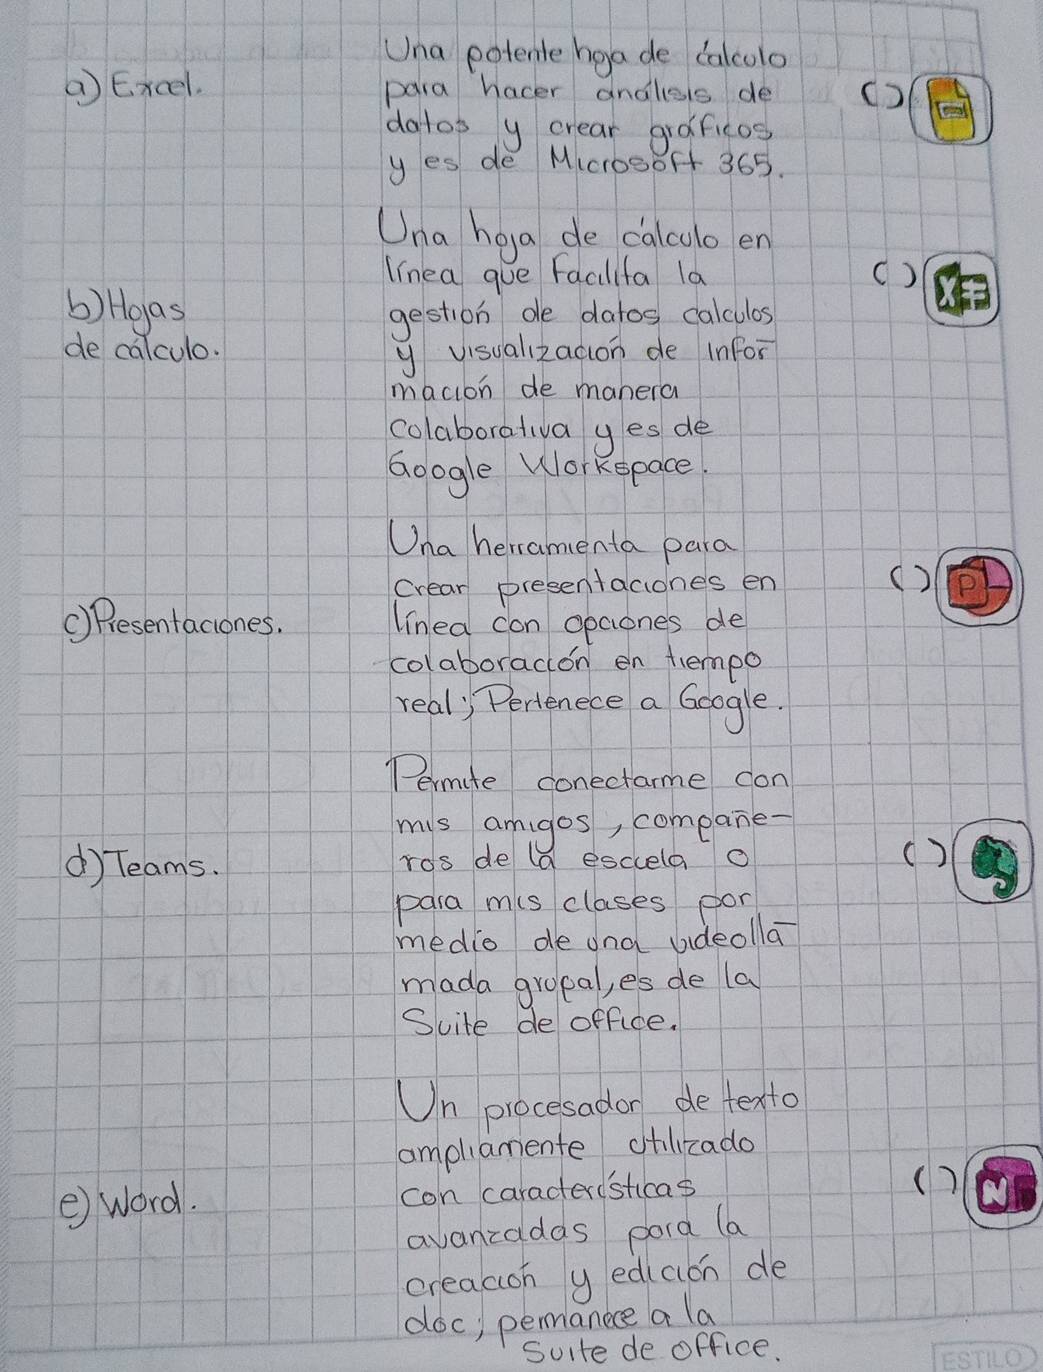 a) Excel.
Una potente hoja de cálculo
para hacer análisis de
datos y crear gráficos
y es de Microsoft 365.
( )
b) Hojas
de cálculo.
Una hoja de cálculo en
línea que Facilita la
gestión de datos calculos
y visualización de infor
mación de manera
colaborativa y es de
Google Workspace.
( ) X
c) Presentaciones.
Una herramienta para
crear presentaciones en
línea con opciones de
colaboración en tiempo
real; Pertenece a Google.
( ) P
d) Teams.
Permite conectarme con
mis amigos, compañe-
ros de la escuela o
para mis clases por
medio de una videolla
mada grupal, es de la
Suite de office.
( )
e) Word.
Un procesador de texto
ampliamente utilizado
con características
avanzadas para la
creación y edición de
doc; permanece a la
Suite de office.
( ) N
ESTILO